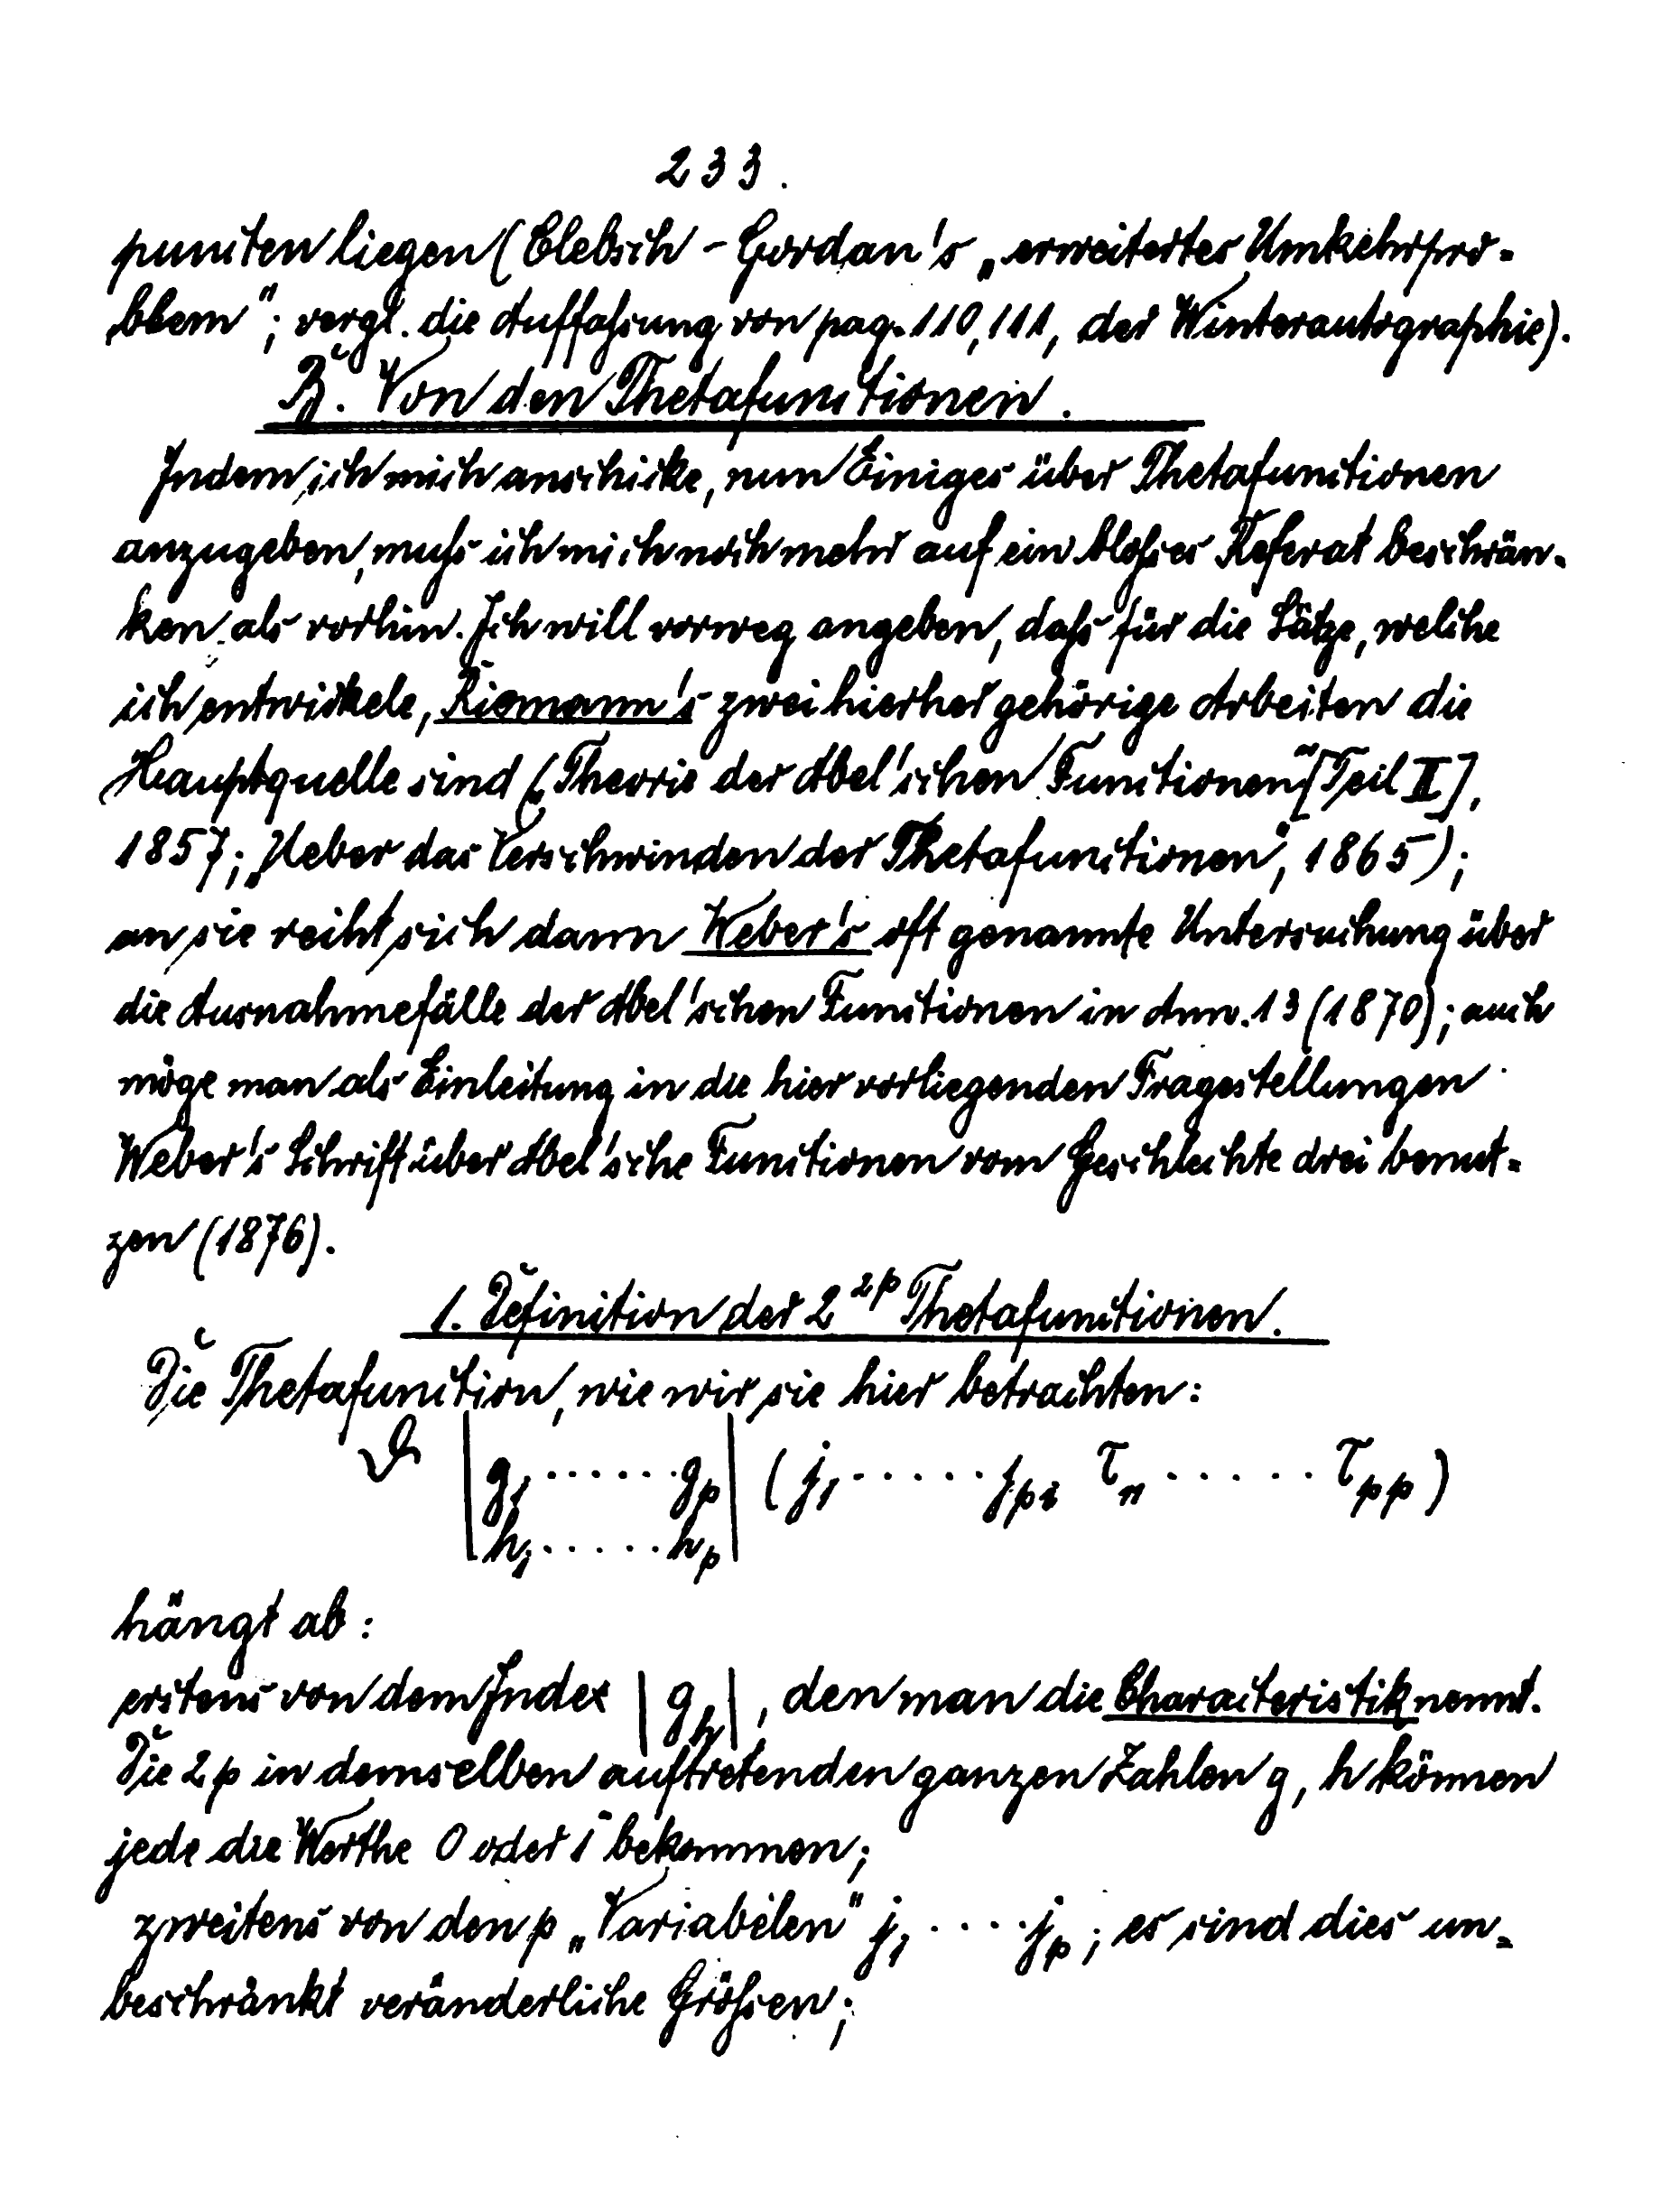 233.
puncten liegen (Clebsch-Gordan's „erweitertes Umkehrpro-
blem"; vergl. die Auffassung von pag. 110, 111, der Winterautographie).
B. Von den Thetafunctionen.
Indem ich mich anschicke, nun Einiges über Thetafunctionen
anzugeben, muss ich mich noch mehr auf ein blosses Referat beschrän-
ken als vorhin. Ich will vorweg angeben, dass für die Sätze, welche
ich entwickele, Riemann's zwei hierher gehörige Arbeiten die
Hauptquelle sind („Theorie der Abel'schen Functionen" [Teil II],
1857; „Ueber das Verschwinden der Thetafunctionen", 1865);
an sie reiht sich dann Weber's oft genannte Untersuchung über
die Ausnahmefälle der Abel'schen Functionen in Ann. 13 (1870); auch
möge man als Einleitung in die hier vorliegenden Fragestellungen
Weber's Schrift über Abel'sche Functionen vom Geschlechte drei benut-
zen (1876).
1. Definition der 2^{2p} Thetafunctionen.
Die Thetafunction, wie wir sie hier betrachten:
ϑ |g₁ ...... g_p| (j₁ ...... j_p; τ₁₁ ...... τ_pp)
|h₁ ...... h_p|
hängt ab:
erstens von dem Index |g h|, den man die Characteristik nennt.
Die 2p in demselben auftretenden ganzen Zahlen g, h können
jede die Werthe 0 oder 1 bekommen;
zweitens von den p „Variabelen" j₁ .... j_p; es sind dies un-
beschränkt veränderliche Grössen;